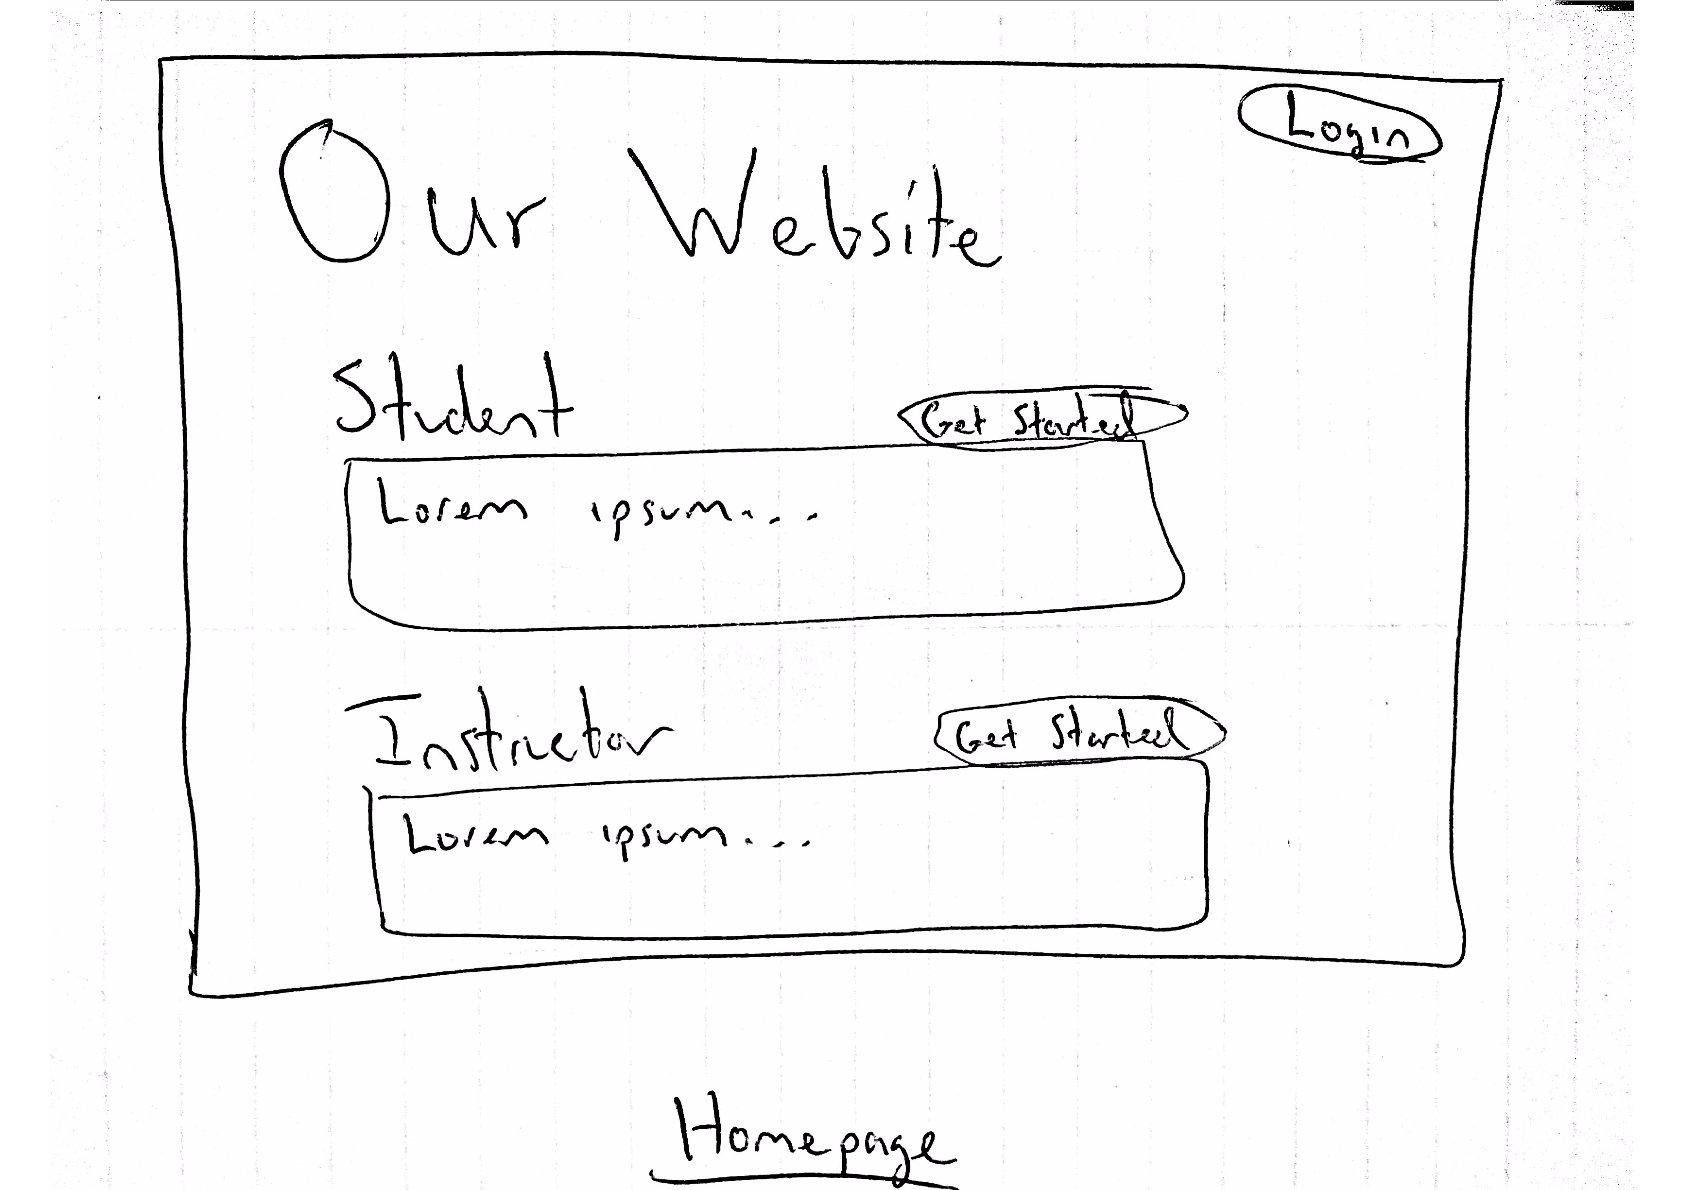 Login
Our Website
Student
Get Started
Lorem ipsum...
Instructor
Get Started
Lorem ipsum...
Homepage